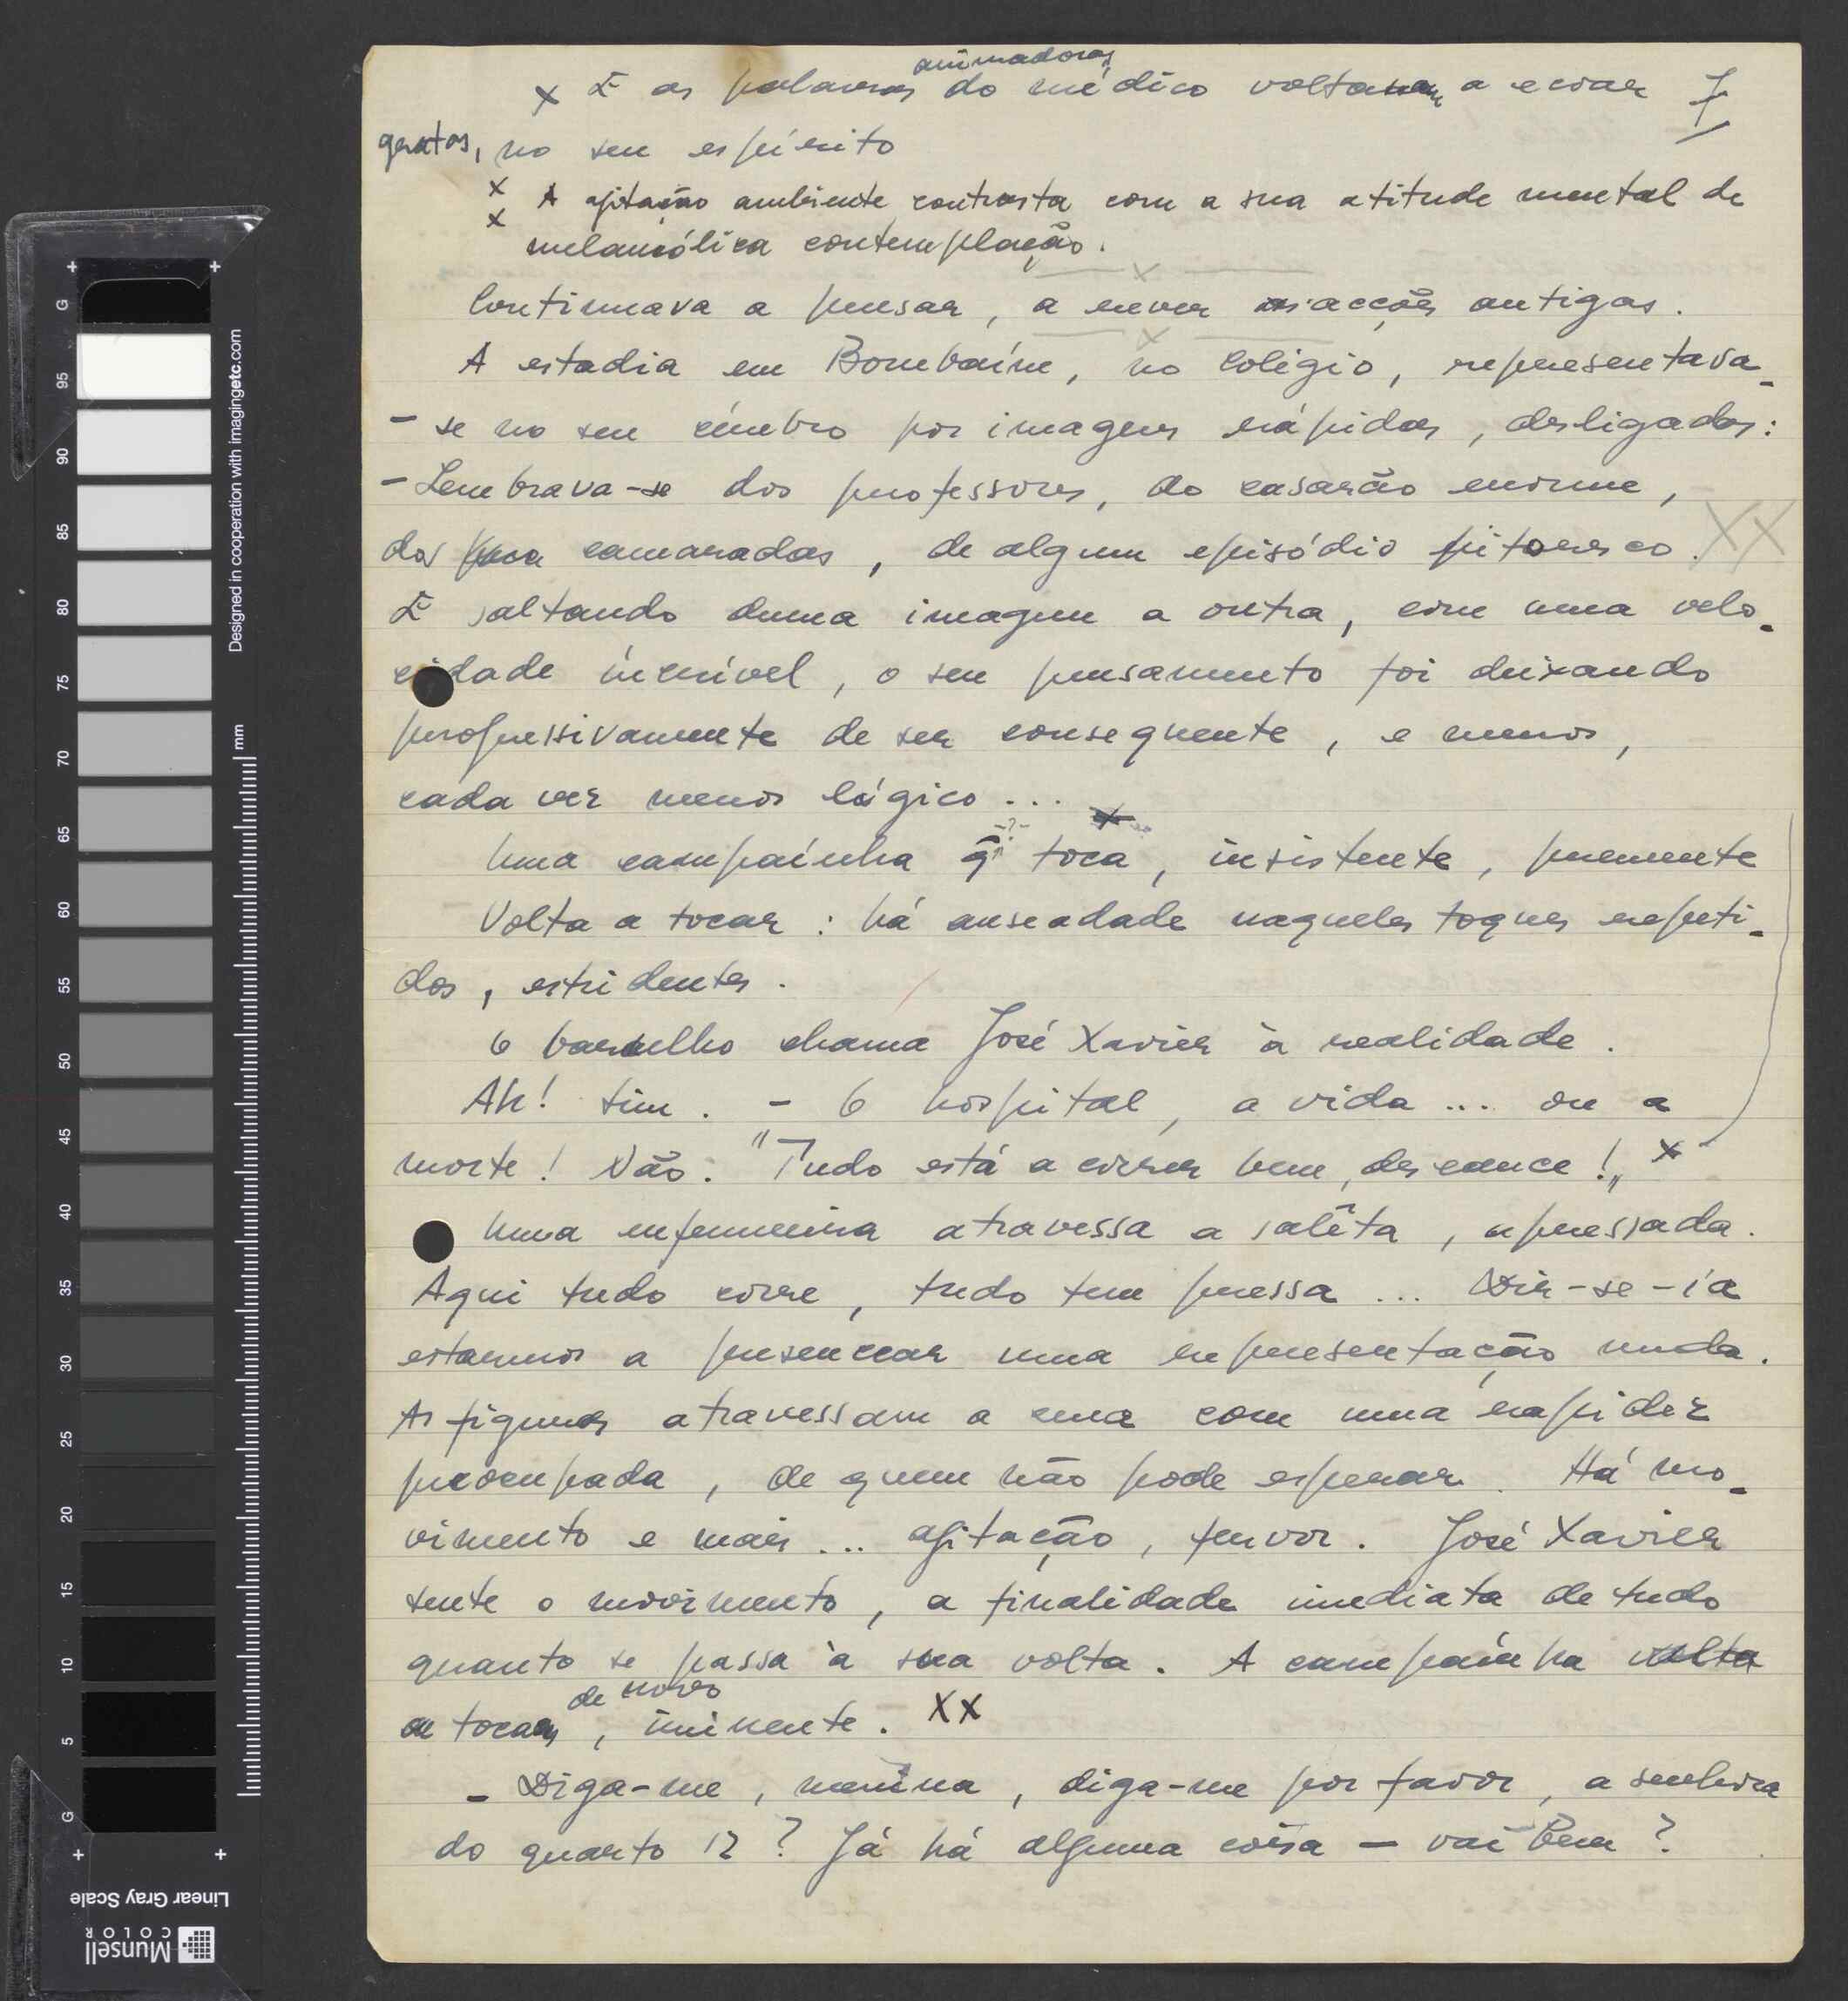 animadoras
x E as palavras do médico voltavam a ecoar 7
gratas, no seu espírito
x A agitação ambiente contrasta com a sua atitude mental de
x melancólica contemplação.
x
Continuava a pensar, a rever as acções antigas.
x
A estadia em Bombaím, no colégio, representava-
- se no seu cérebro por imagens rápidas, desligadas:
- Lembrava-se dos professores, do casarão enorme,
dos camaradas, de algum episódio pitoresco. XX
E saltando duma imagem a outra, com uma velo-
cidade incrível, o seu pensamento foi deixando
progressivamente de ser consequente, e menos,
cada vez menos lógico...
-?- x
Uma campaínha q toca, insistente, premente
Volta a tocar: há anseadade naqueles toques repeti-
dos, estridentes.
O barulho chama José Xavier à realidade.
Ah! sim. - O hospital, a vida... ou a
morte! Não. "Tudo está a correr bem, descance!" x
Uma enfermeira atravessa a salêta, apressada.
Aqui tudo corre, tudo tem pressa... Dir-se-ía
estarmos a presencear uma representação muda.
As figuras atravessam a cena com uma rapidez
preocupada, de quem não pode esperar. Há mo-
vimento e mais... agitação, fervor. José Xavier
sente o movimento, a finalidade imediata de tudo
quanto se passa à sua volta. A campaínha volta
de novo
a tocar, iminente. XX
- Diga-me, menina, diga-me por favor, a senhora
do quarto 12? Já há alguma coisa - vai bem?
Designed in cooperation with imagingetc.com
mm
G 95 90 85 80 75 70 65 60 55 50 45 40 35 30 25 20 15 10 5 G
Linear Gray Scale
Munsell
COLOR